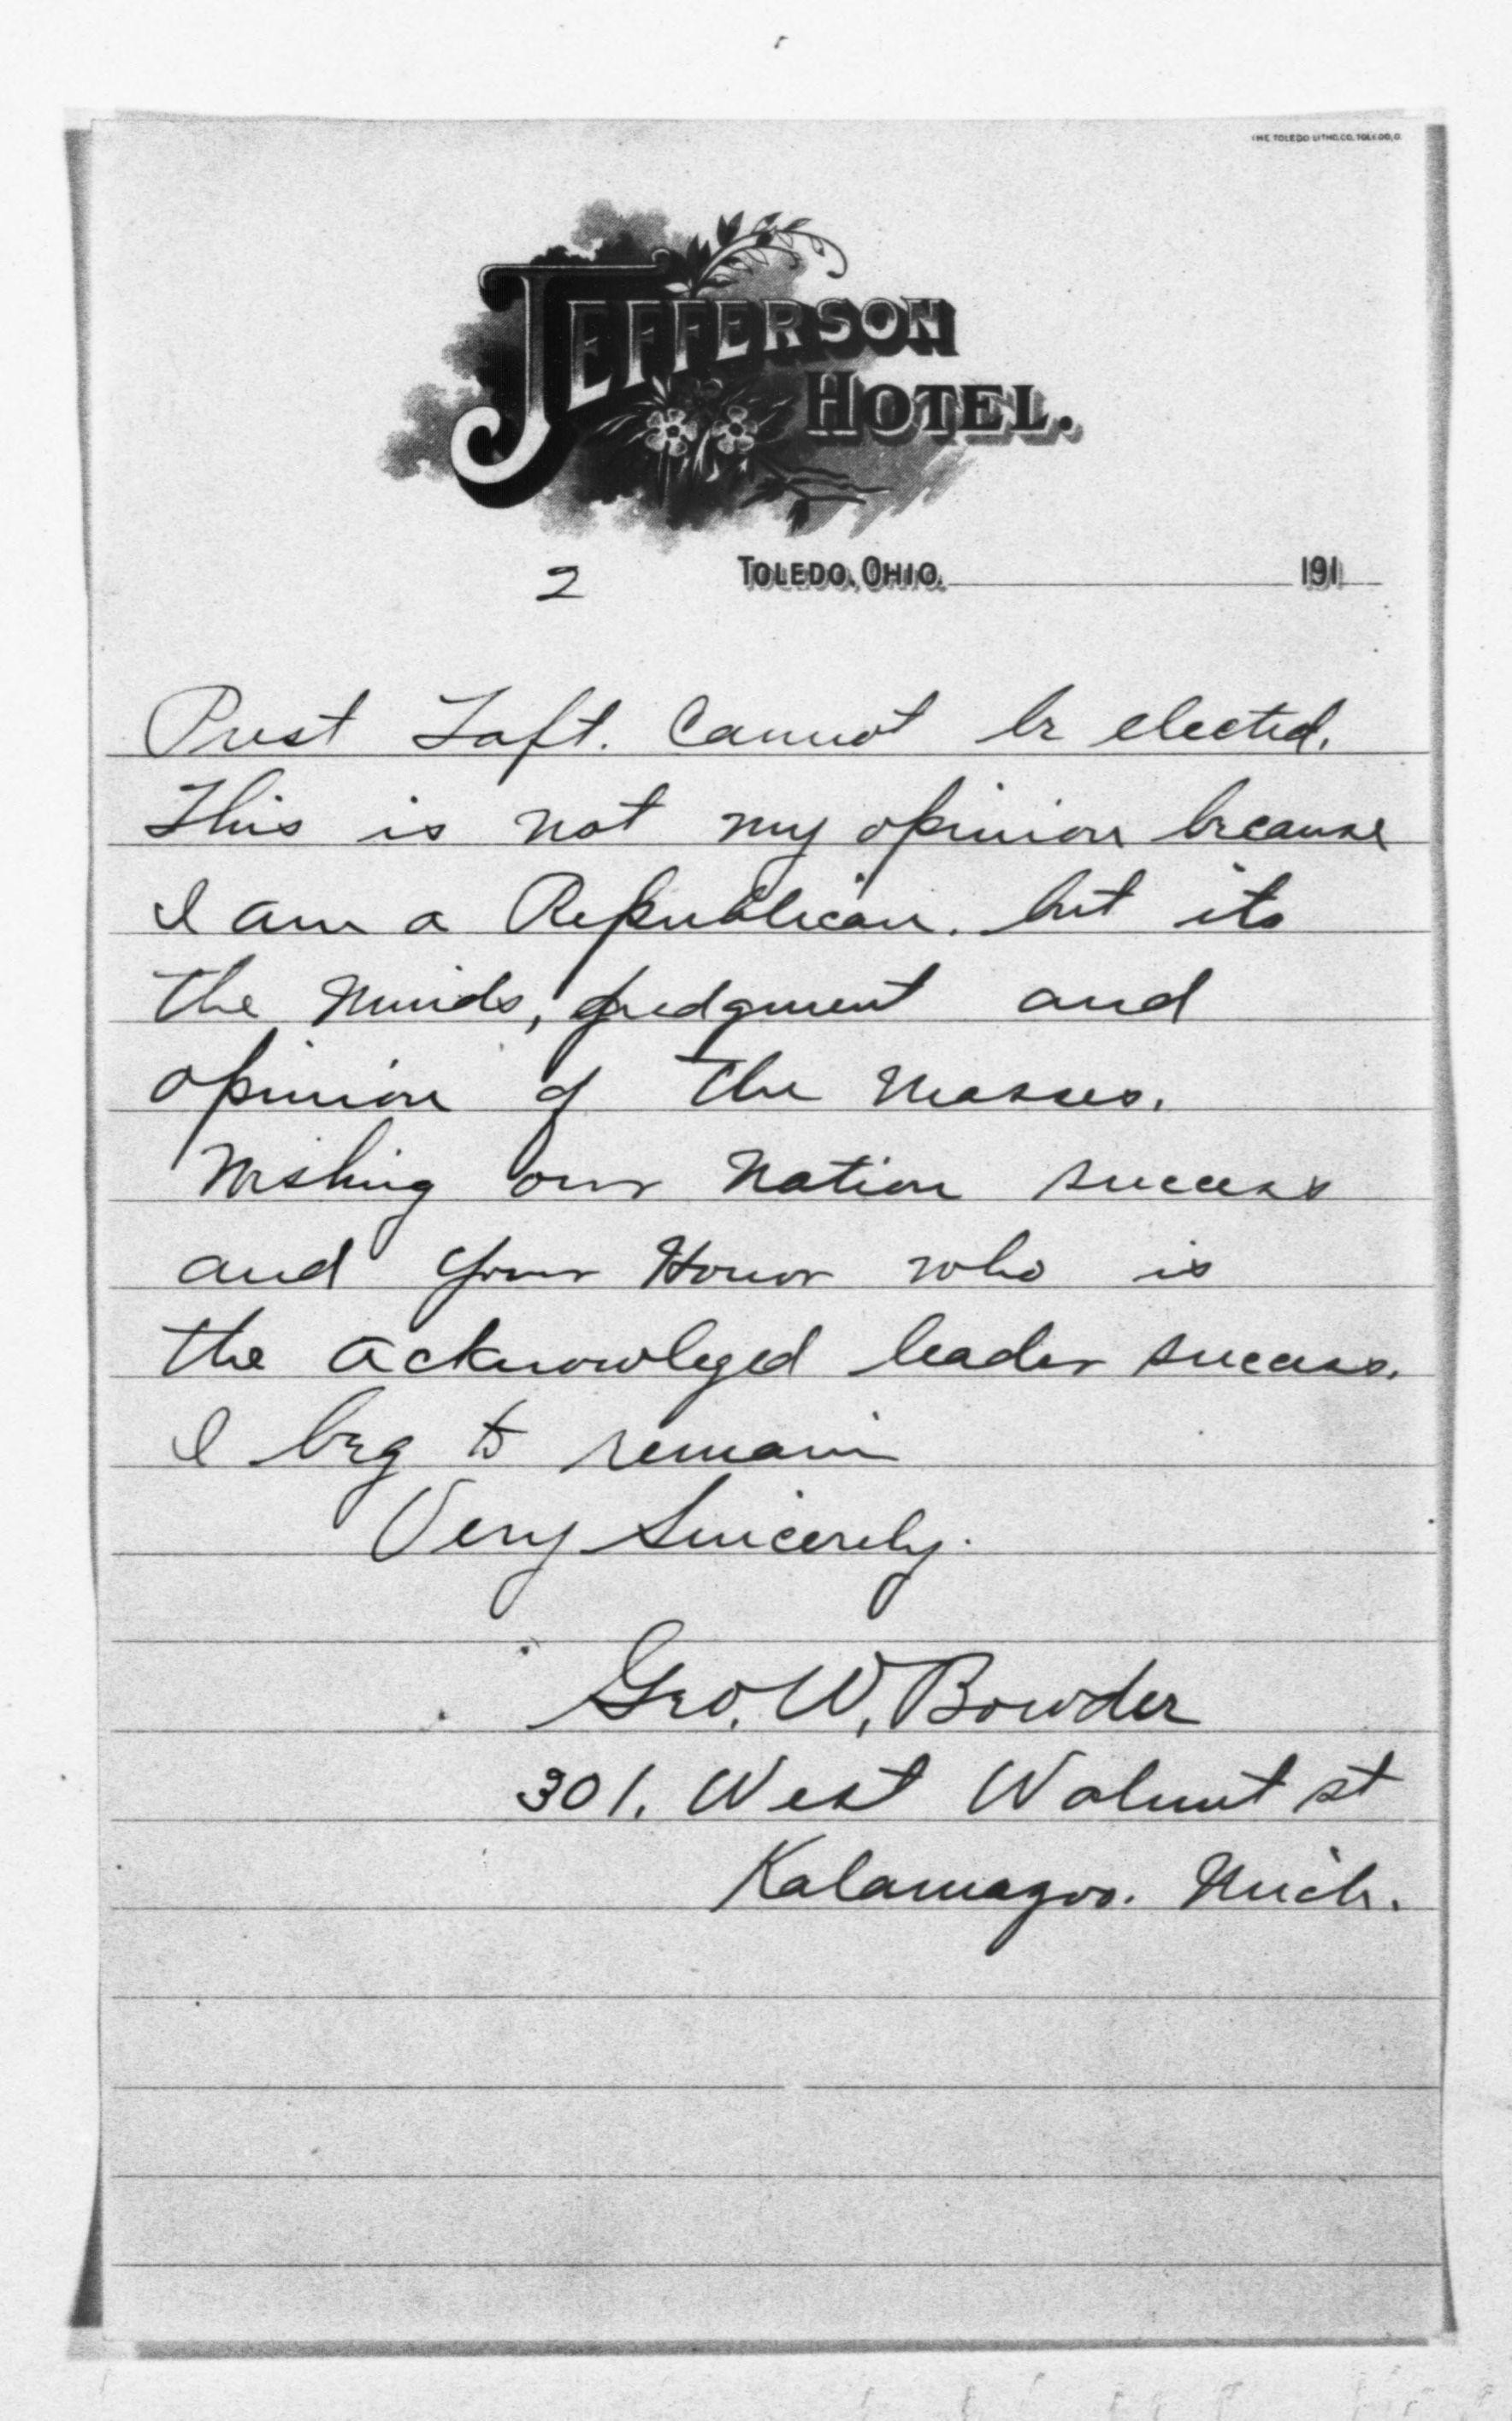 THE TOLEDO LITHO.CO. TOLEDO, O.
JEFFERSON
HOTEL.
2 TOLEDO, OHIO. 191
Prest Taft. Cannot be elected.
This is not my opinion because
I am a Republican. but its
the Minds, Judgment and
opinion of the Masses.
Wishing our Nation success
and your Honor who is
the acknowleged leader success.
I beg to remain
Very Sincerely.
Geo. W. Bowder
301. West Walnut st
Kalamazoo. Mich.